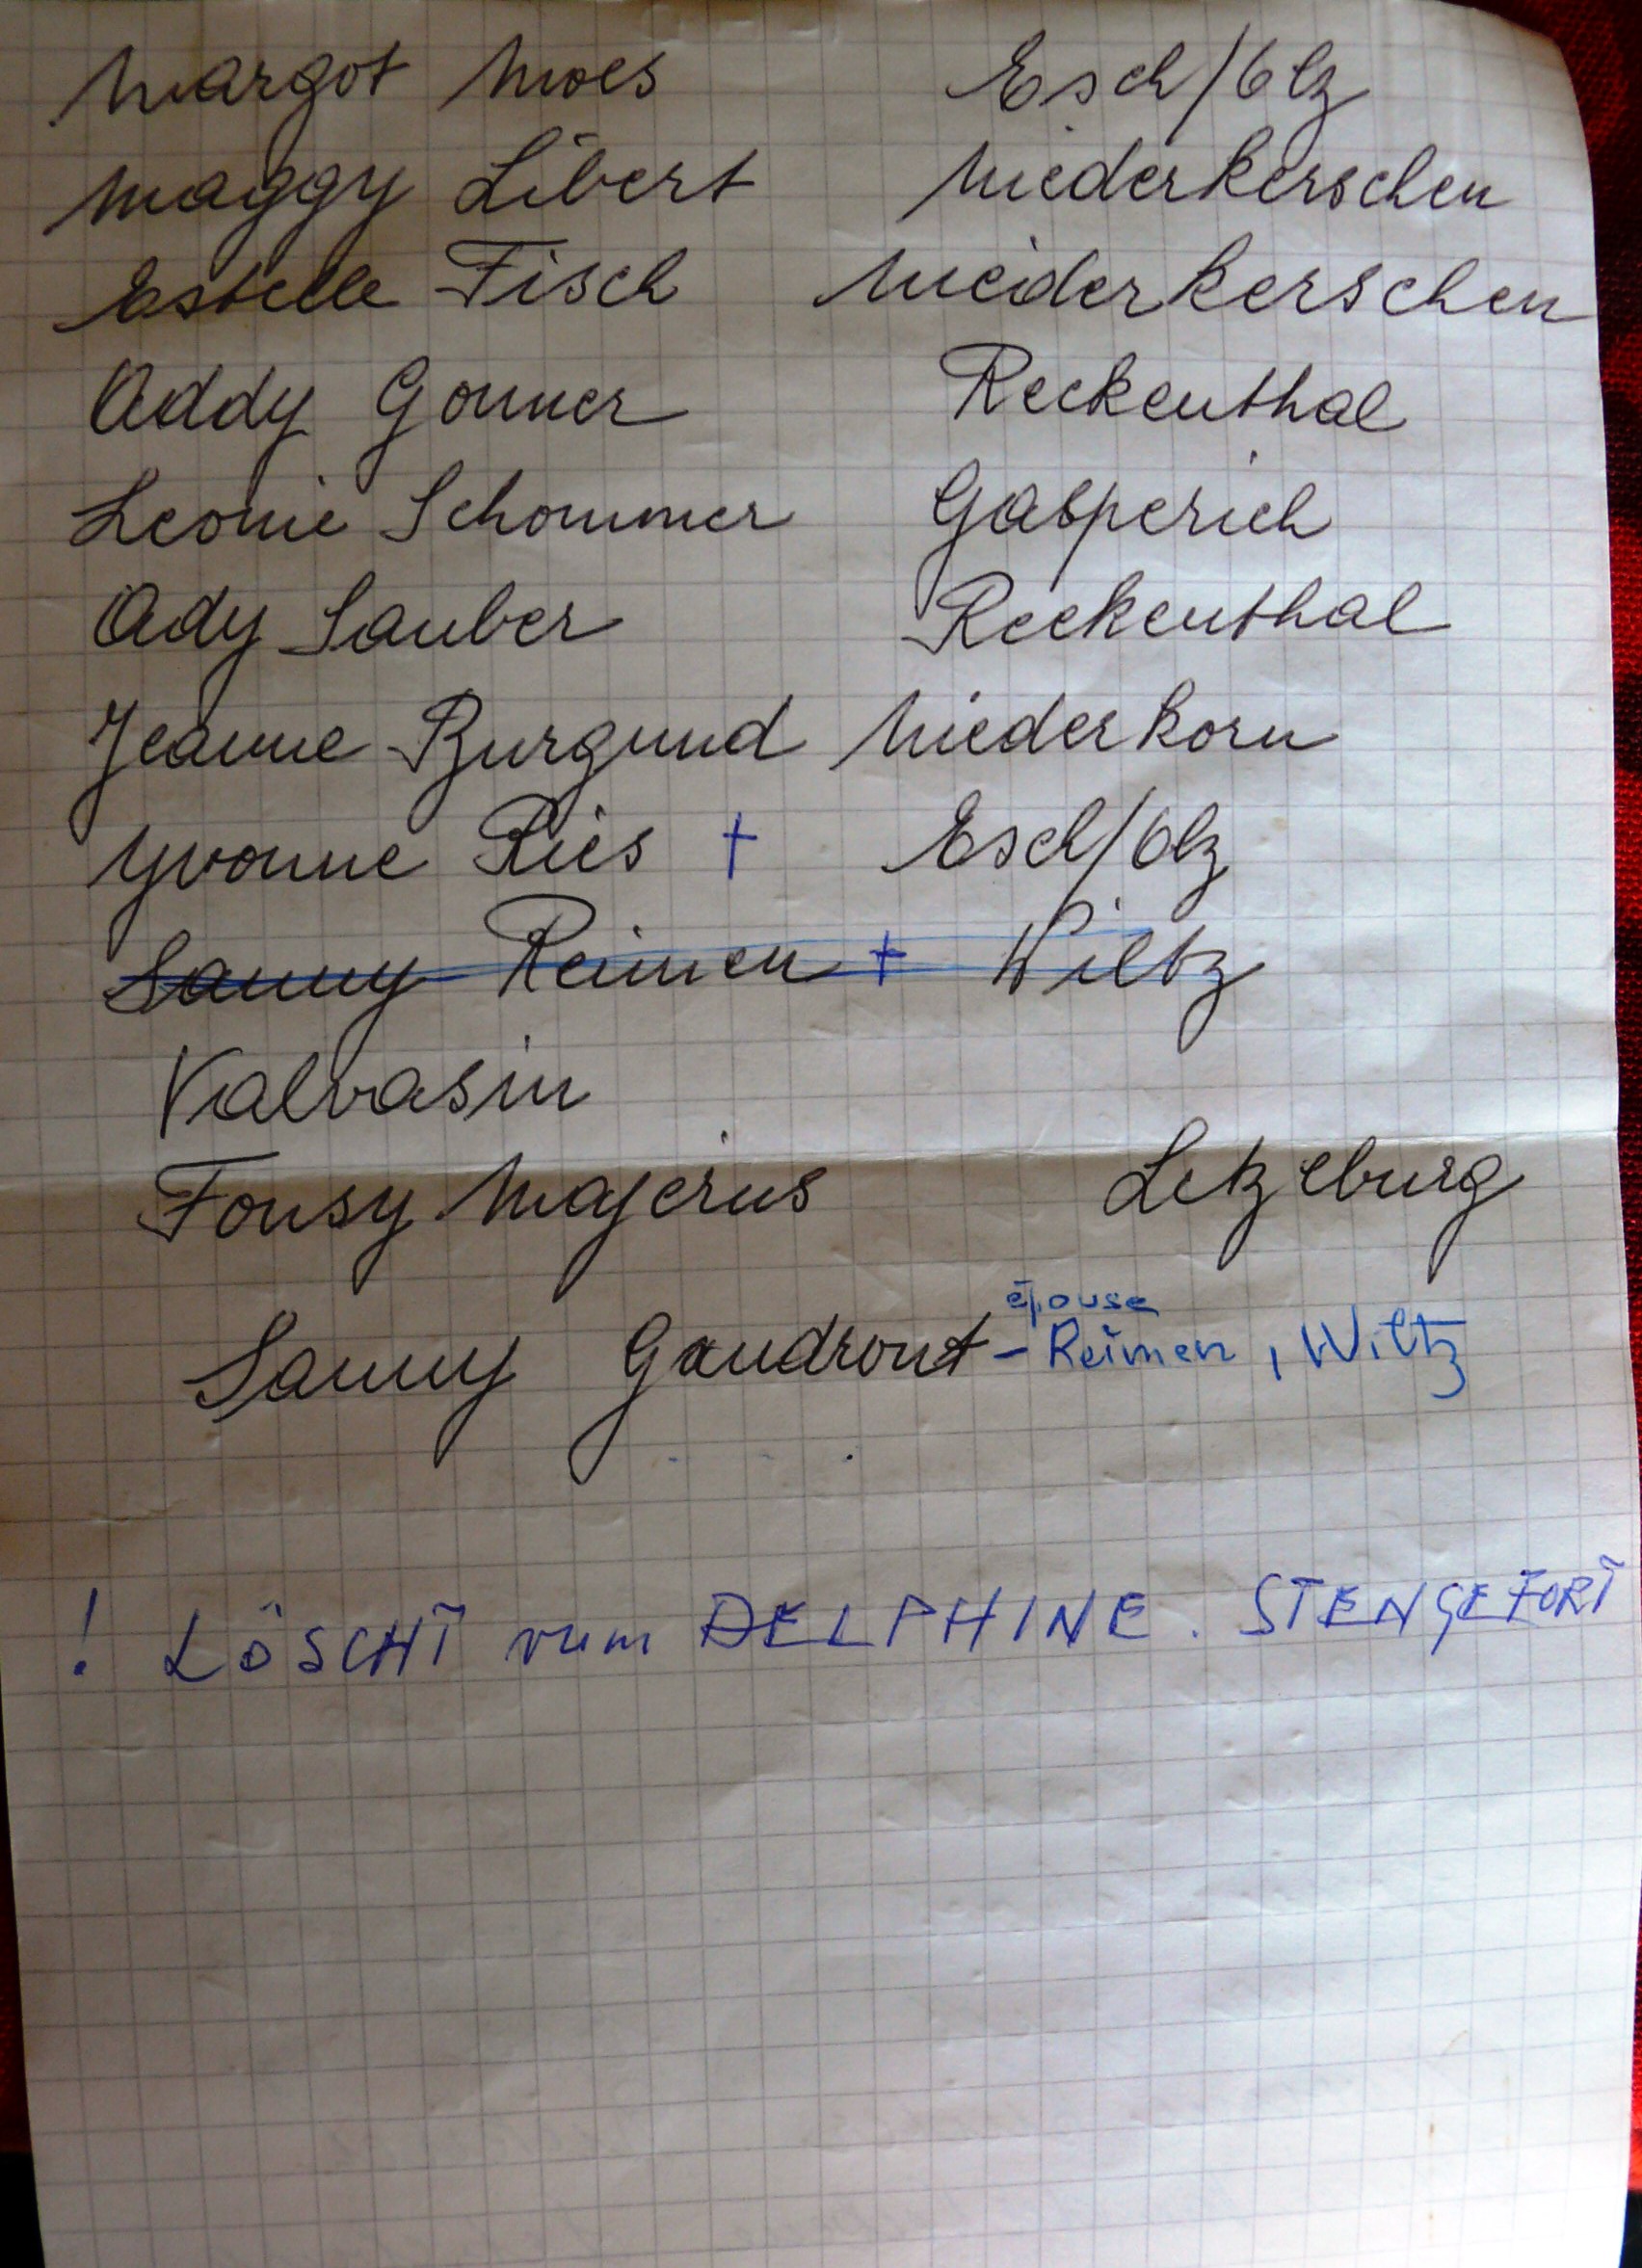 Margot Moes Esch/Olz
Maggy Libert Niederkerschen
Estelle Fisch Neiderkerschen
Addy Gonner Reckenthal
Leonie Schommer Gasperich
Ady Sauber Reckenthal
Jeanne Burgund Niederkorn
Yvonne Ries † Esch/Olz
Sanny Reimen † Wiltz
Valvasin
Fonsy Majerus Letzeburg
épouse
Sanny Gaudront - Reimen, Wiltz
! LÖSCHT vum DELPHINE. STENGEFORT